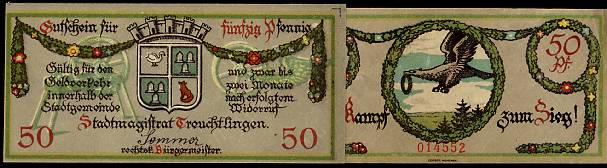 Gutschein für fünfzig Pfennig
Gültig für den
Geldverkehr
innerhalb der
Stadtgemeinde
und zwar bis
zwei Monate
nach erfolgtem
Widerruf
Stadtmagistrat Treuchtlingen.
50
50
Sommer
rechtsk. Bürgermeister.
50
Pf.
Kampf zum Sieg!
014552